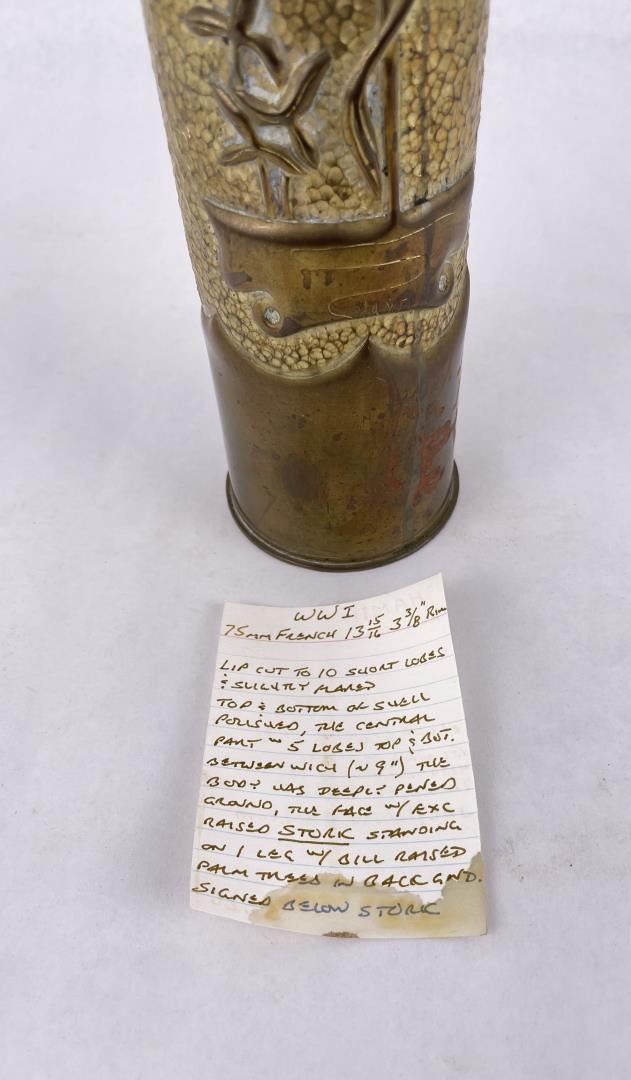 WWI
75MM FRENCH 13 15/16 3 3/8" RIM
LIP CUT TO 10 SHORT LOBES
& SLIGHTLY FLARED
TOP & BOTTOM OF SHELL
POLISHED, THE CENTRAL
PART w 5 LOBES TOP & BOT.
BETWEEN WICH (~ 9") THE
BODY HAS DEEPLY PENED
GROUND, THE FACE w/ EXC
RAISED STORK STANDING
ON 1 LEG w/ BILL RAISED
PALM TREES IN BACK GND.
SIGNED BELOW STORK